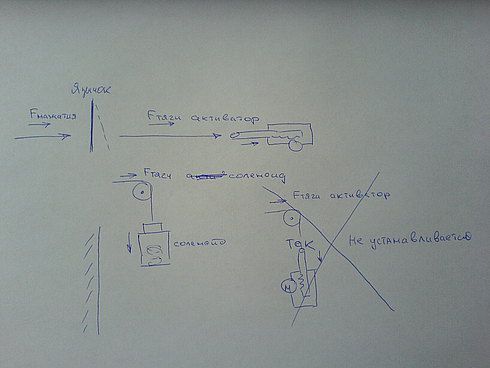 Язычок
Fнажатия
Fтяги активатор
Fтяги соленоид
соленоид
Fтяги активатор
Так
Не устанавливается
М